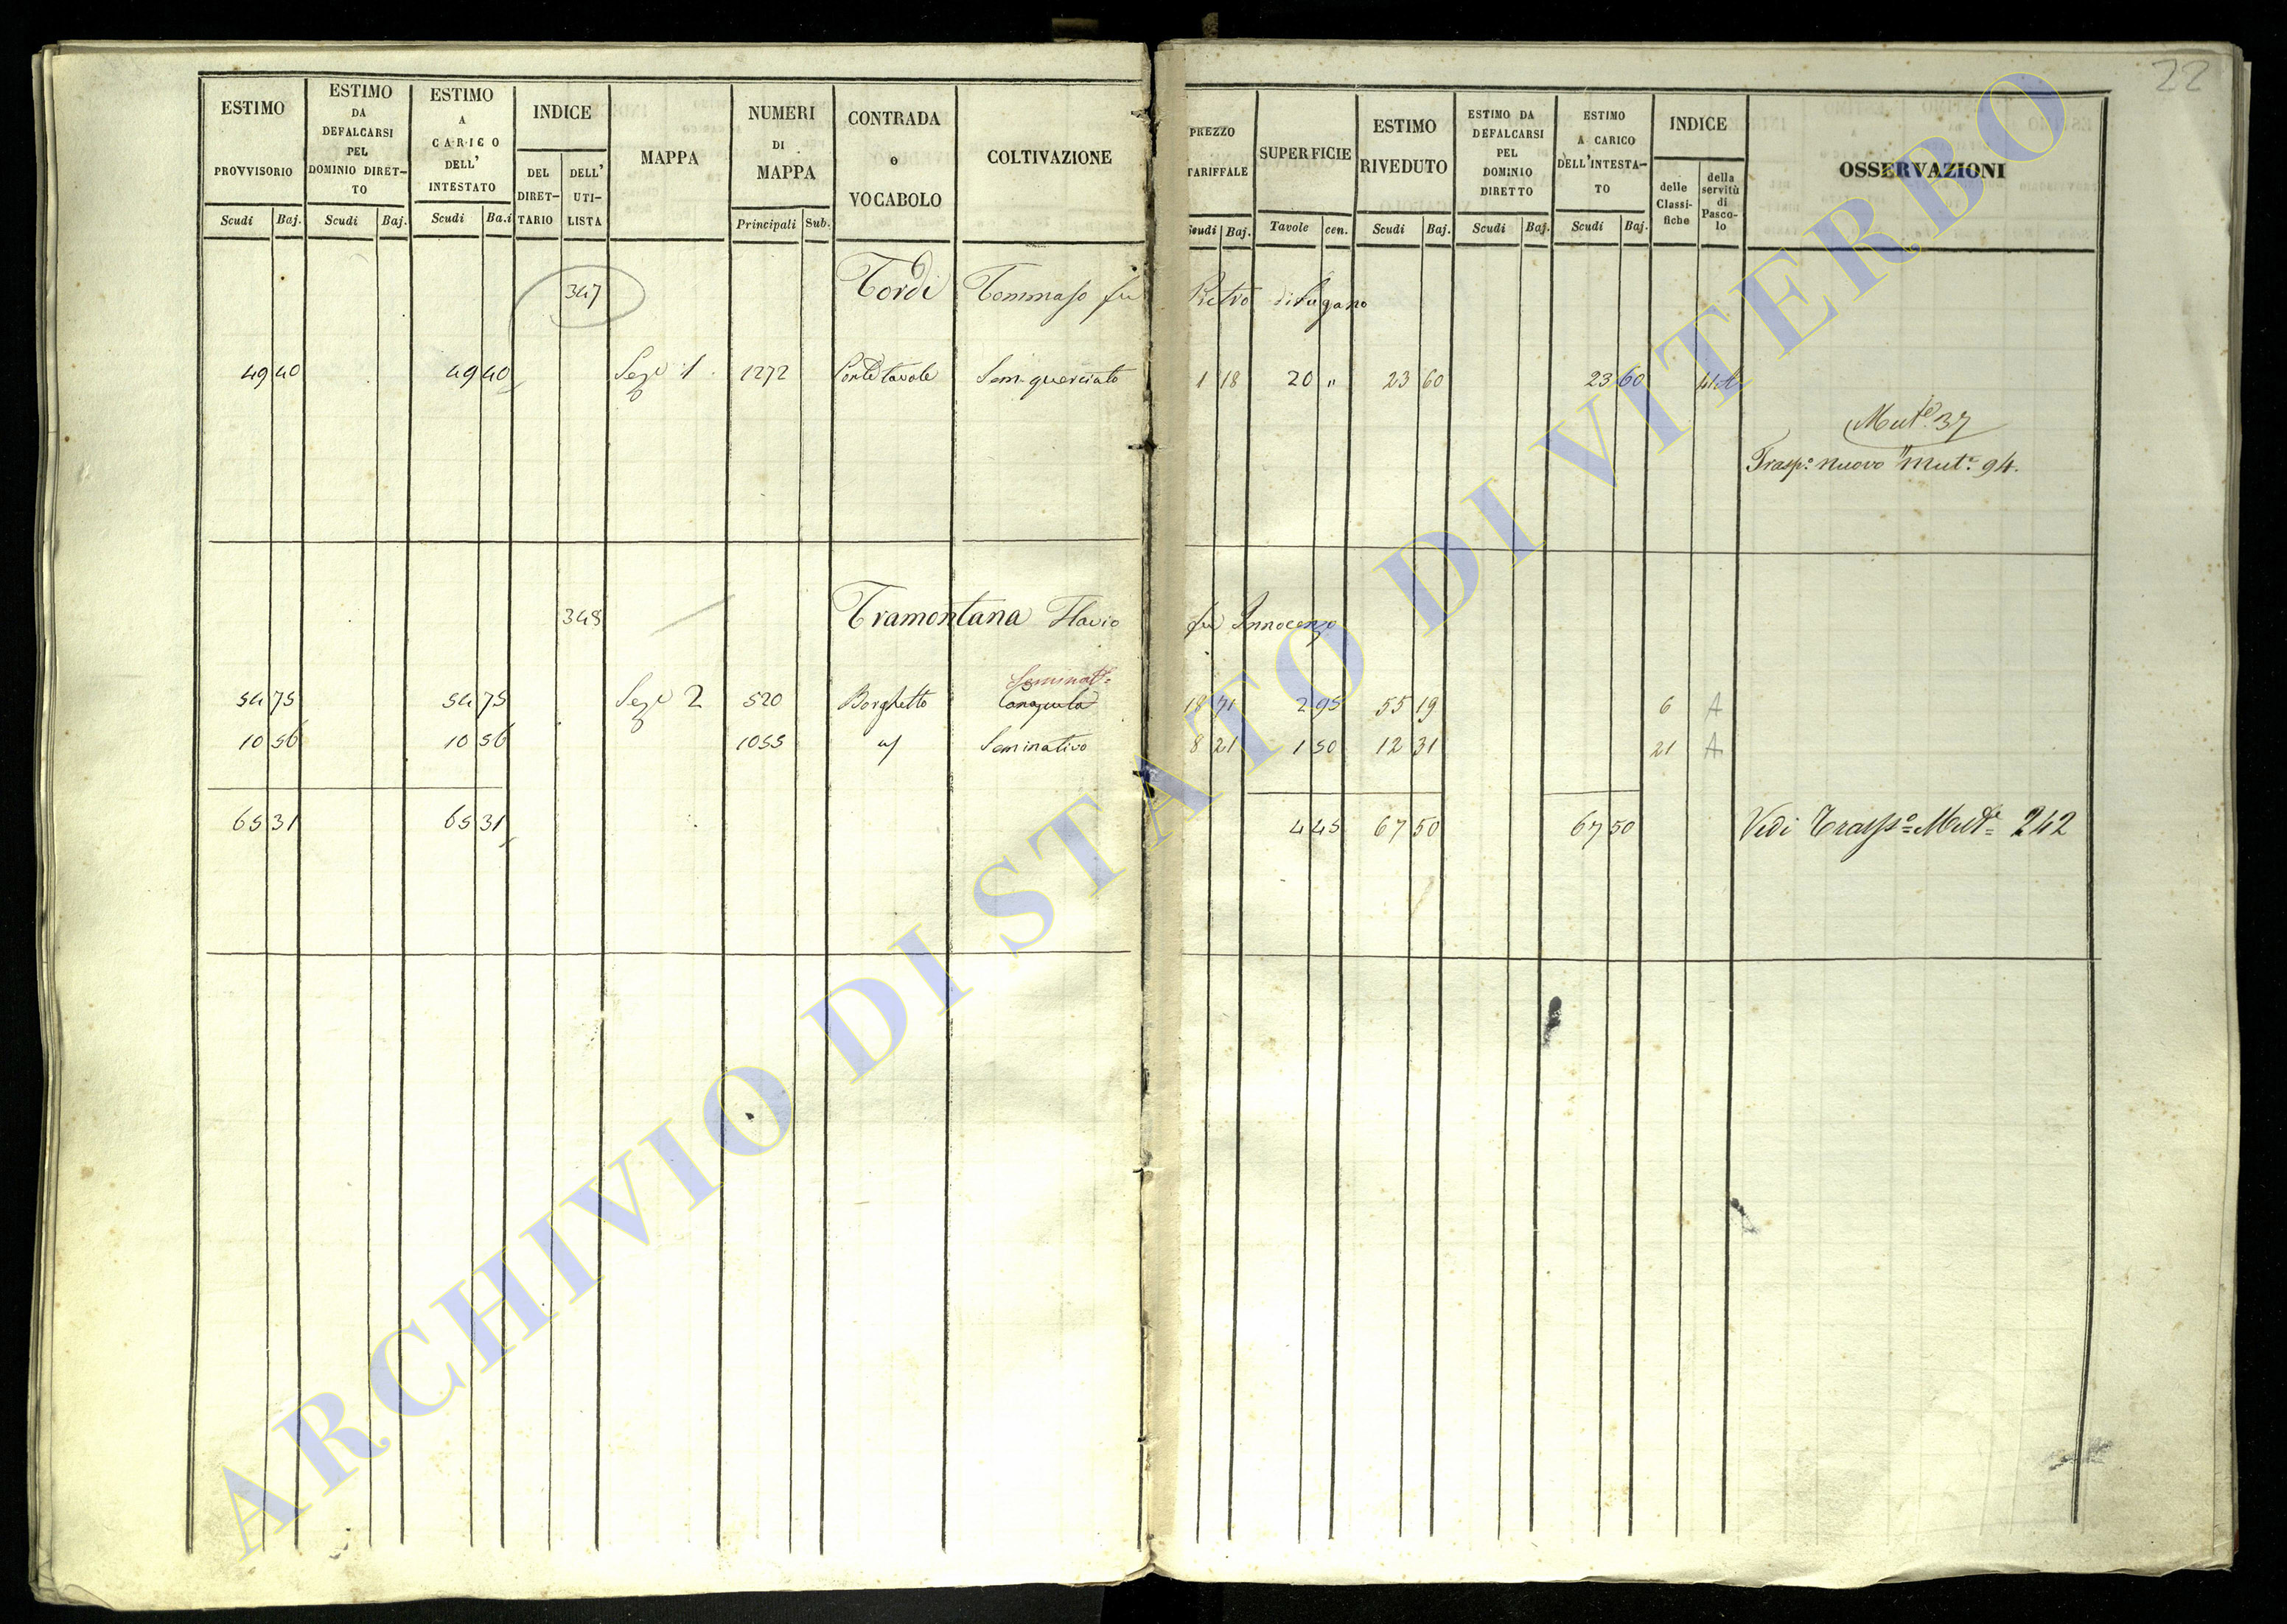 22
ESTIMO PROVVISORIO Scudi Baj.
ESTIMO DA DEFALCARSI PEL DOMINIO DIRET-TO Scudi Baj.
ESTIMO A CARICO DELL' INTESTATO Scudi Ba.i
INDICE DEL DIRET-TARIO DELL' UTI-LISTA
MAPPA
NUMERI DI MAPPA Principali Sub.
CONTRADA o VOCABOLO
COLTIVAZIONE
PREZZO TARIFFALE Scudi Baj.
SUPERFICIE Tavole cen.
ESTIMO RIVEDUTO Scudi Baj.
ESTIMO DA DEFALCARSI PEL DOMINIO DIRETTO Scudi Baj.
ESTIMO A CARICO DELL'INTESTA-TO Scudi Baj.
INDICE delle Classi-fiche della servitù di Pasco-lo
OSSERVAZIONI
347 Tordi Tommaso fu Pietro di Lugano
49 40 49 40 Sez.e 1 1272 Ponte tavole Sem. querciato 1 18 20 " 23 60 23 60
Mut.e 37
Trasp.o nuovo Mut.e 94.
348 Tramontana Flavio fu Innocenzo
Seminat.o
54 75 54 75 Sez.e 2 520 Borghetto Canapule 18 71 2 95 55 19 6 A
10 56 10 56 1055 a/ Seminativo 8 21 1 50 12 31 21 A
65 31 65 31 4 45 67 50 67 50 Vedi Trasp.o Mut.e 242
ARCHIVIO DI STATO DI VITERBO